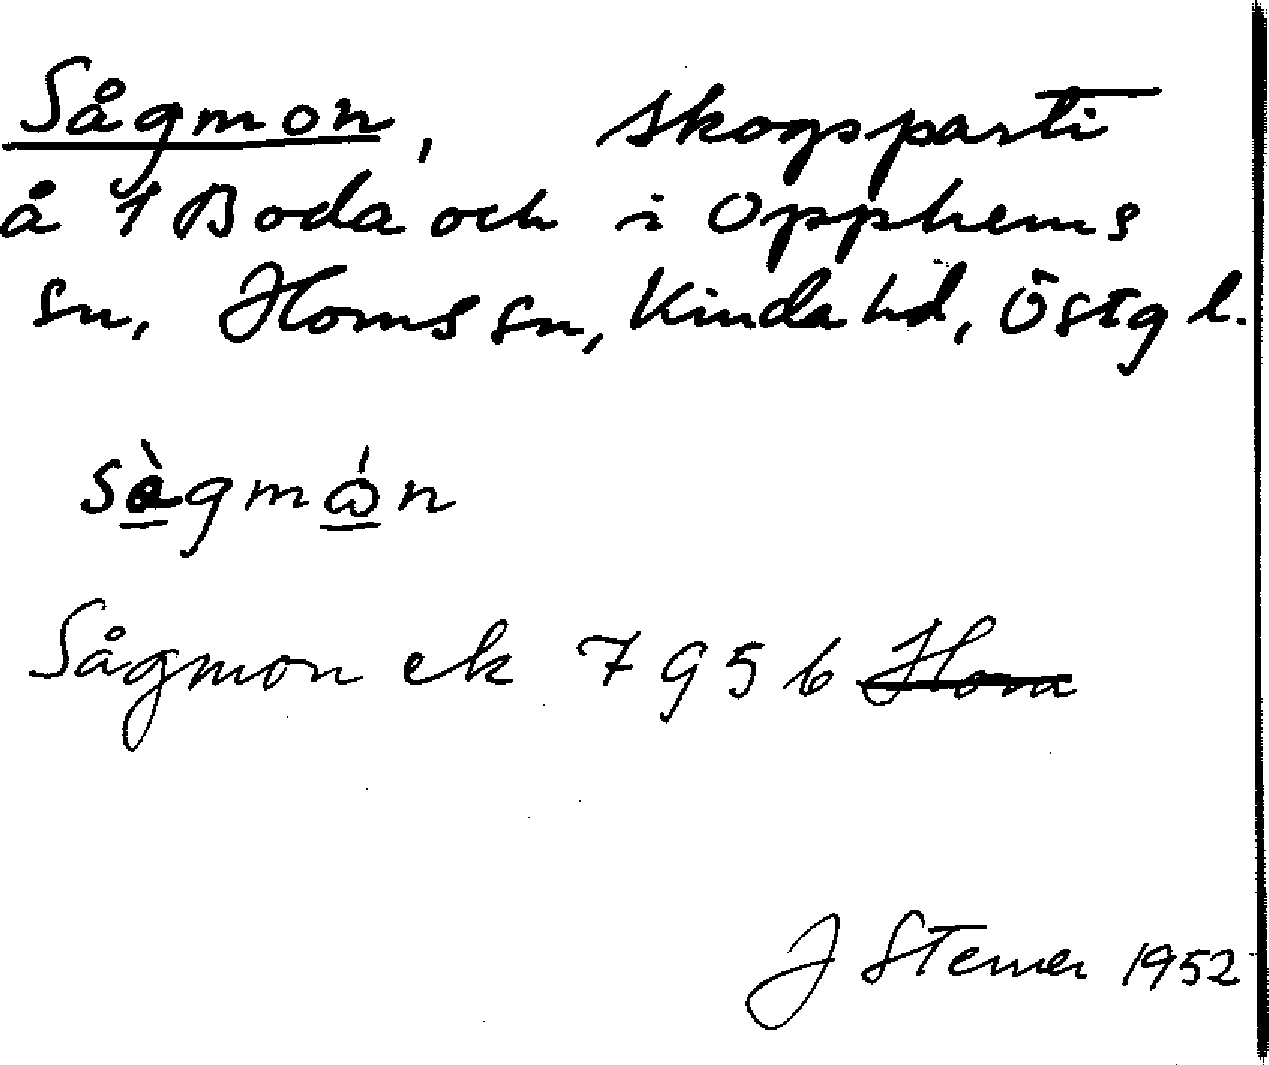 Sågmon, skogsparti
å 1 Boda och i Opphems
sn, Horns sn, Kinda hd, Östgl.
sàgmón
Sågmon ek 7956 Horn
J Stemer 1952